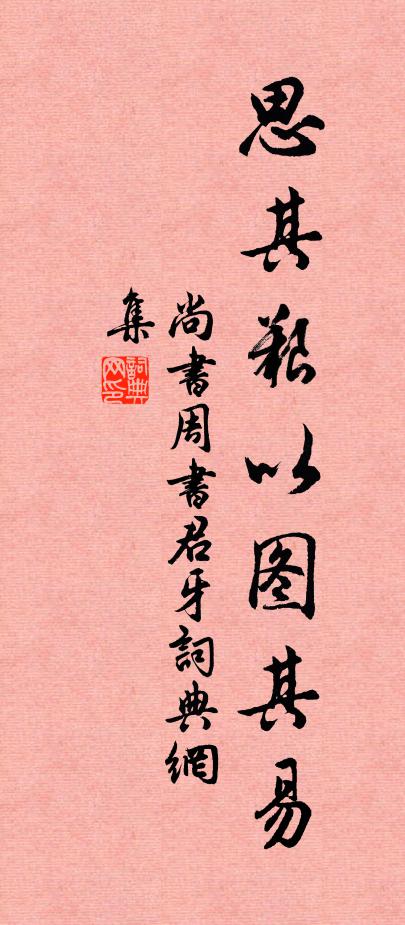 思其艱以图其易
尚書周書君牙詞典網
集
詞典
网印